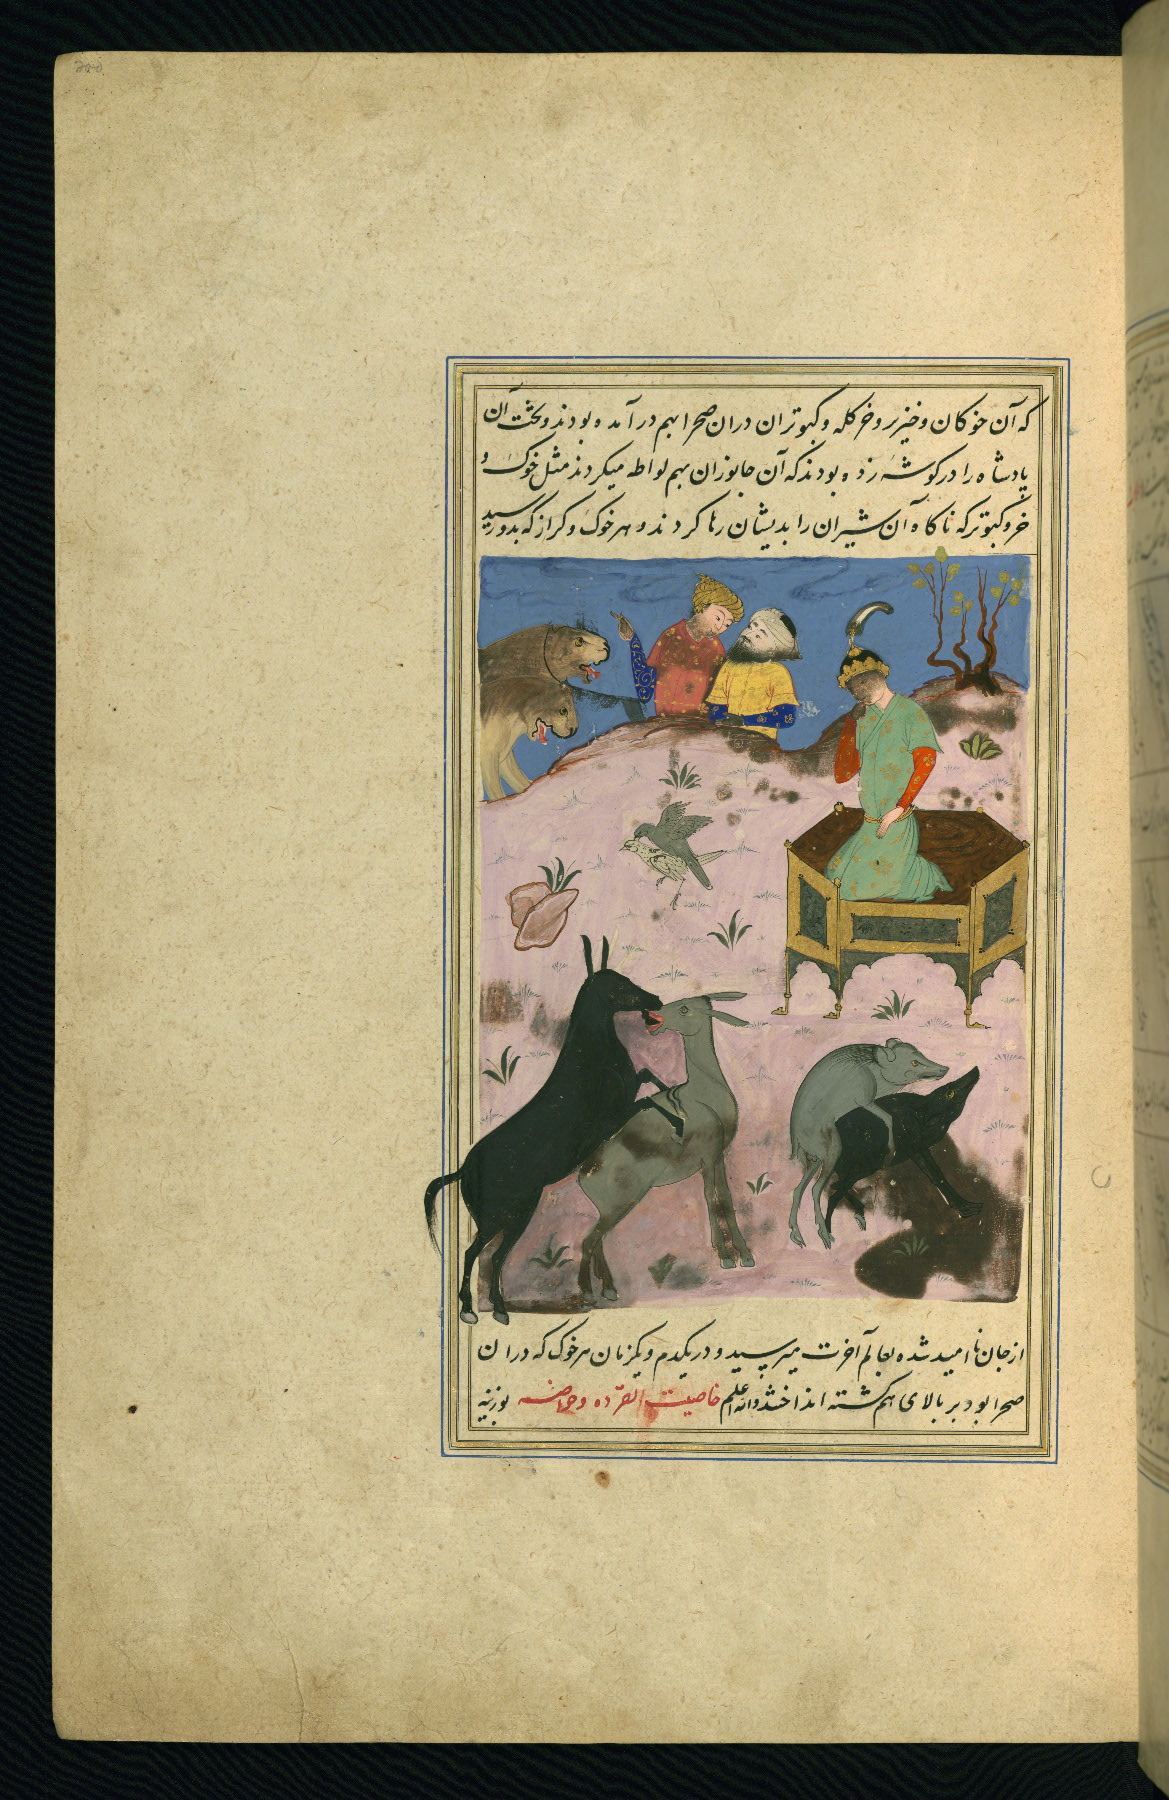 که آن خوکان و خنزیر و خر کله و کبوتران در ان صحرا بهم در آمده بودند و تخت آن
پادشاه را در کوشه زده بودند که آن جانوران بهم لواطه میکردند مثل خوک و
خر و کبوتر که ناکاه آن شیران را بدیشان رها کردند و هر خوک و کراز که بدو رسید
از جان نا امید شده بعالم آخرت میرسید و در یکدم و یکزمان هر خوک که در ان
صحرا بود بر بالای هم کشته انداختند والله اعلم خاصیت القرده و بوزینه